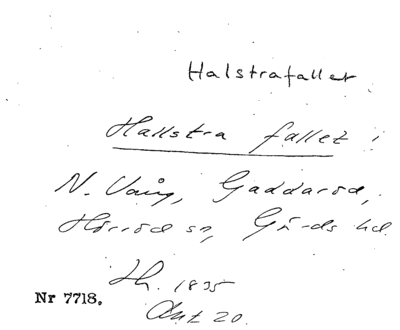 Halstrafallet
Hallstra fallet i
N. Vång, Gaddaröd,
Hörröd sn, Gärds hd.
Lh. 1835
Nr 7718.
Akt 20.